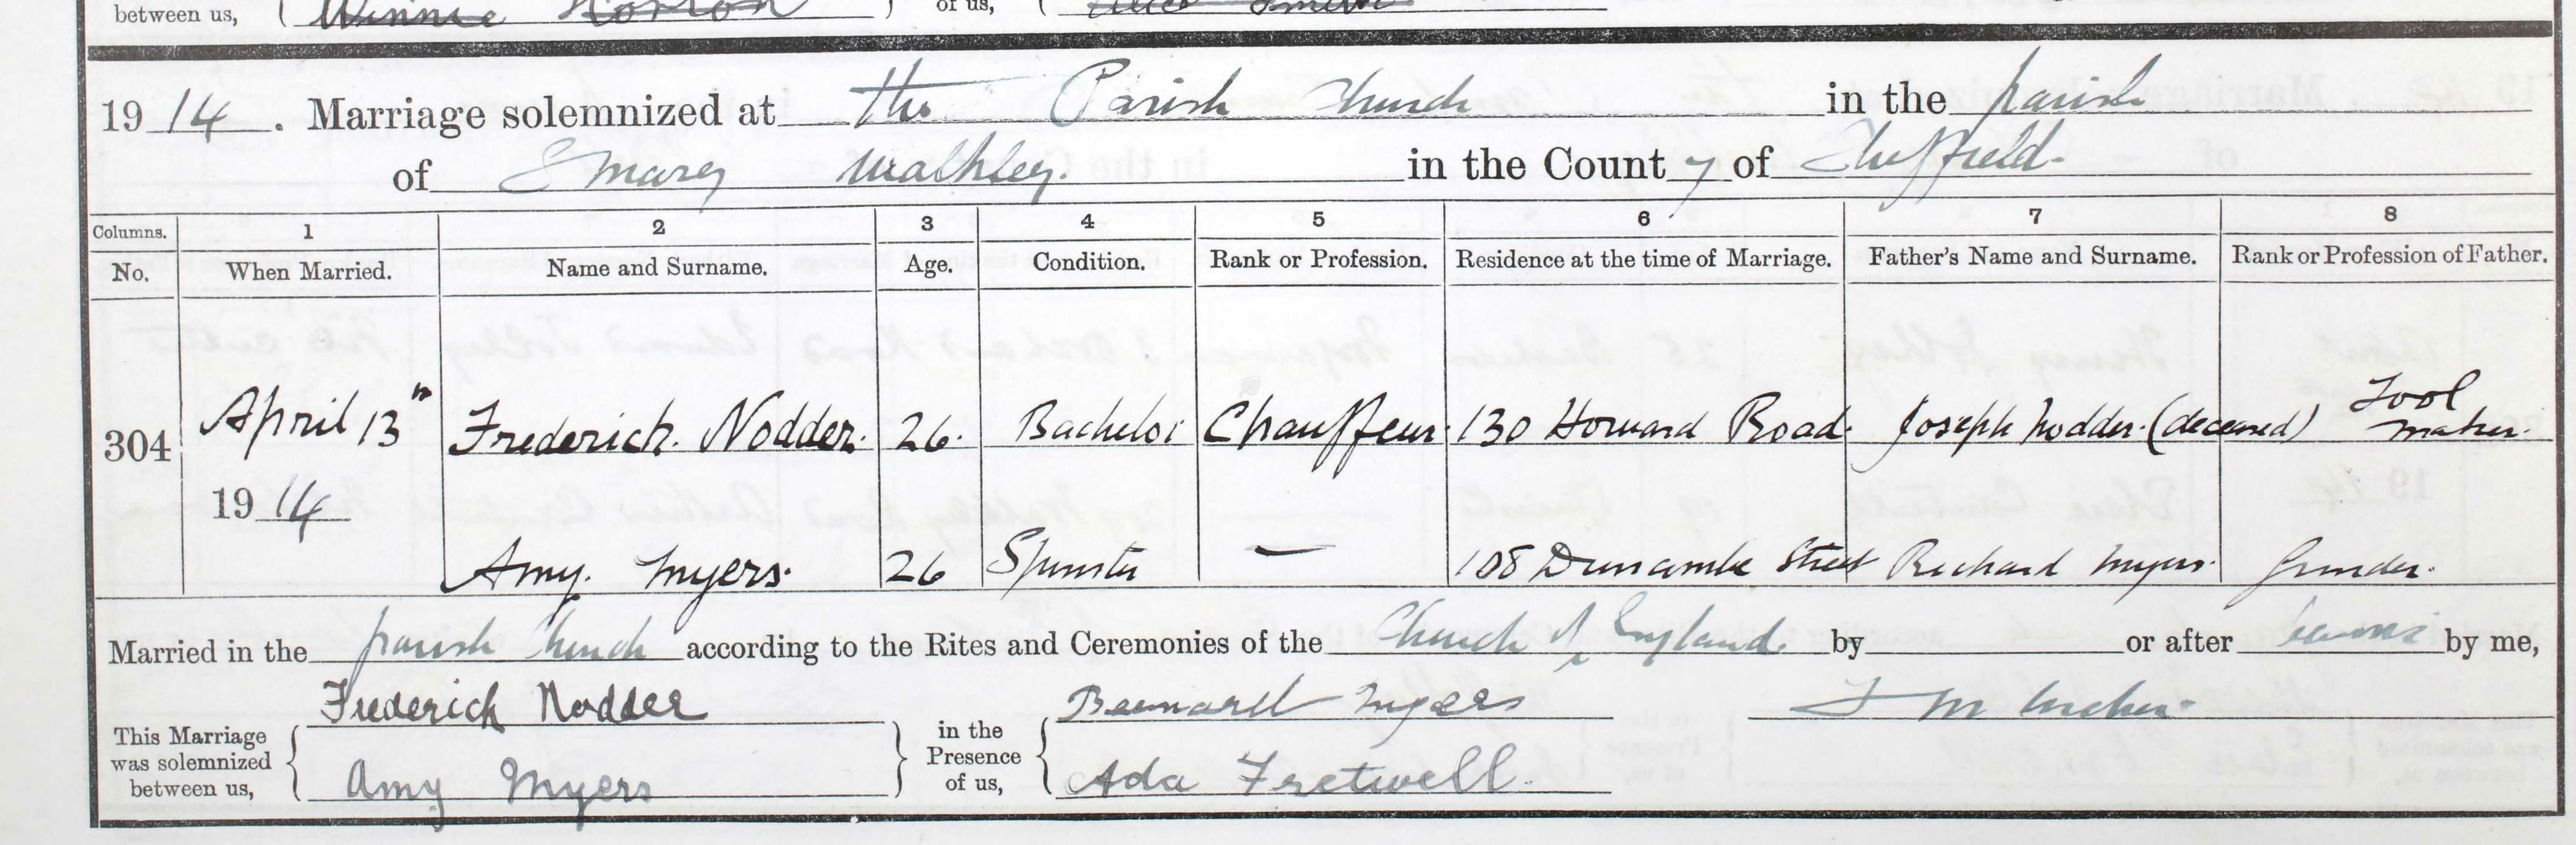 between us, Winnie Horton of us, Alice Smith
1914. Marriage solemnized at the Parish Church in the parish
of S Mary Walkley. in the County of Sheffield.
Columns. 1 2 3 4 5 6 7 8
No. When Married. Name and Surname. Age. Condition. Rank or Profession. Residence at the time of Marriage. Father's Name and Surname. Rank or Profession of Father.
304 April 13th Frederick Nodder. 26. Bachelor Chauffeur. 130 Howard Road. Joseph Nodder. (deceased) Tool maker.
1914
Amy. Myers. 26 Spinster — 108 Duncombe Street Richard Myers. Grinder.
Married in the parish Church according to the Rites and Ceremonies of the Church of England. by or after banns by me,
This Marriage was solemnized between us, Frederick Nodder
Amy Myers
in the Presence of us, Bernard Myers
Ada Fretwell.